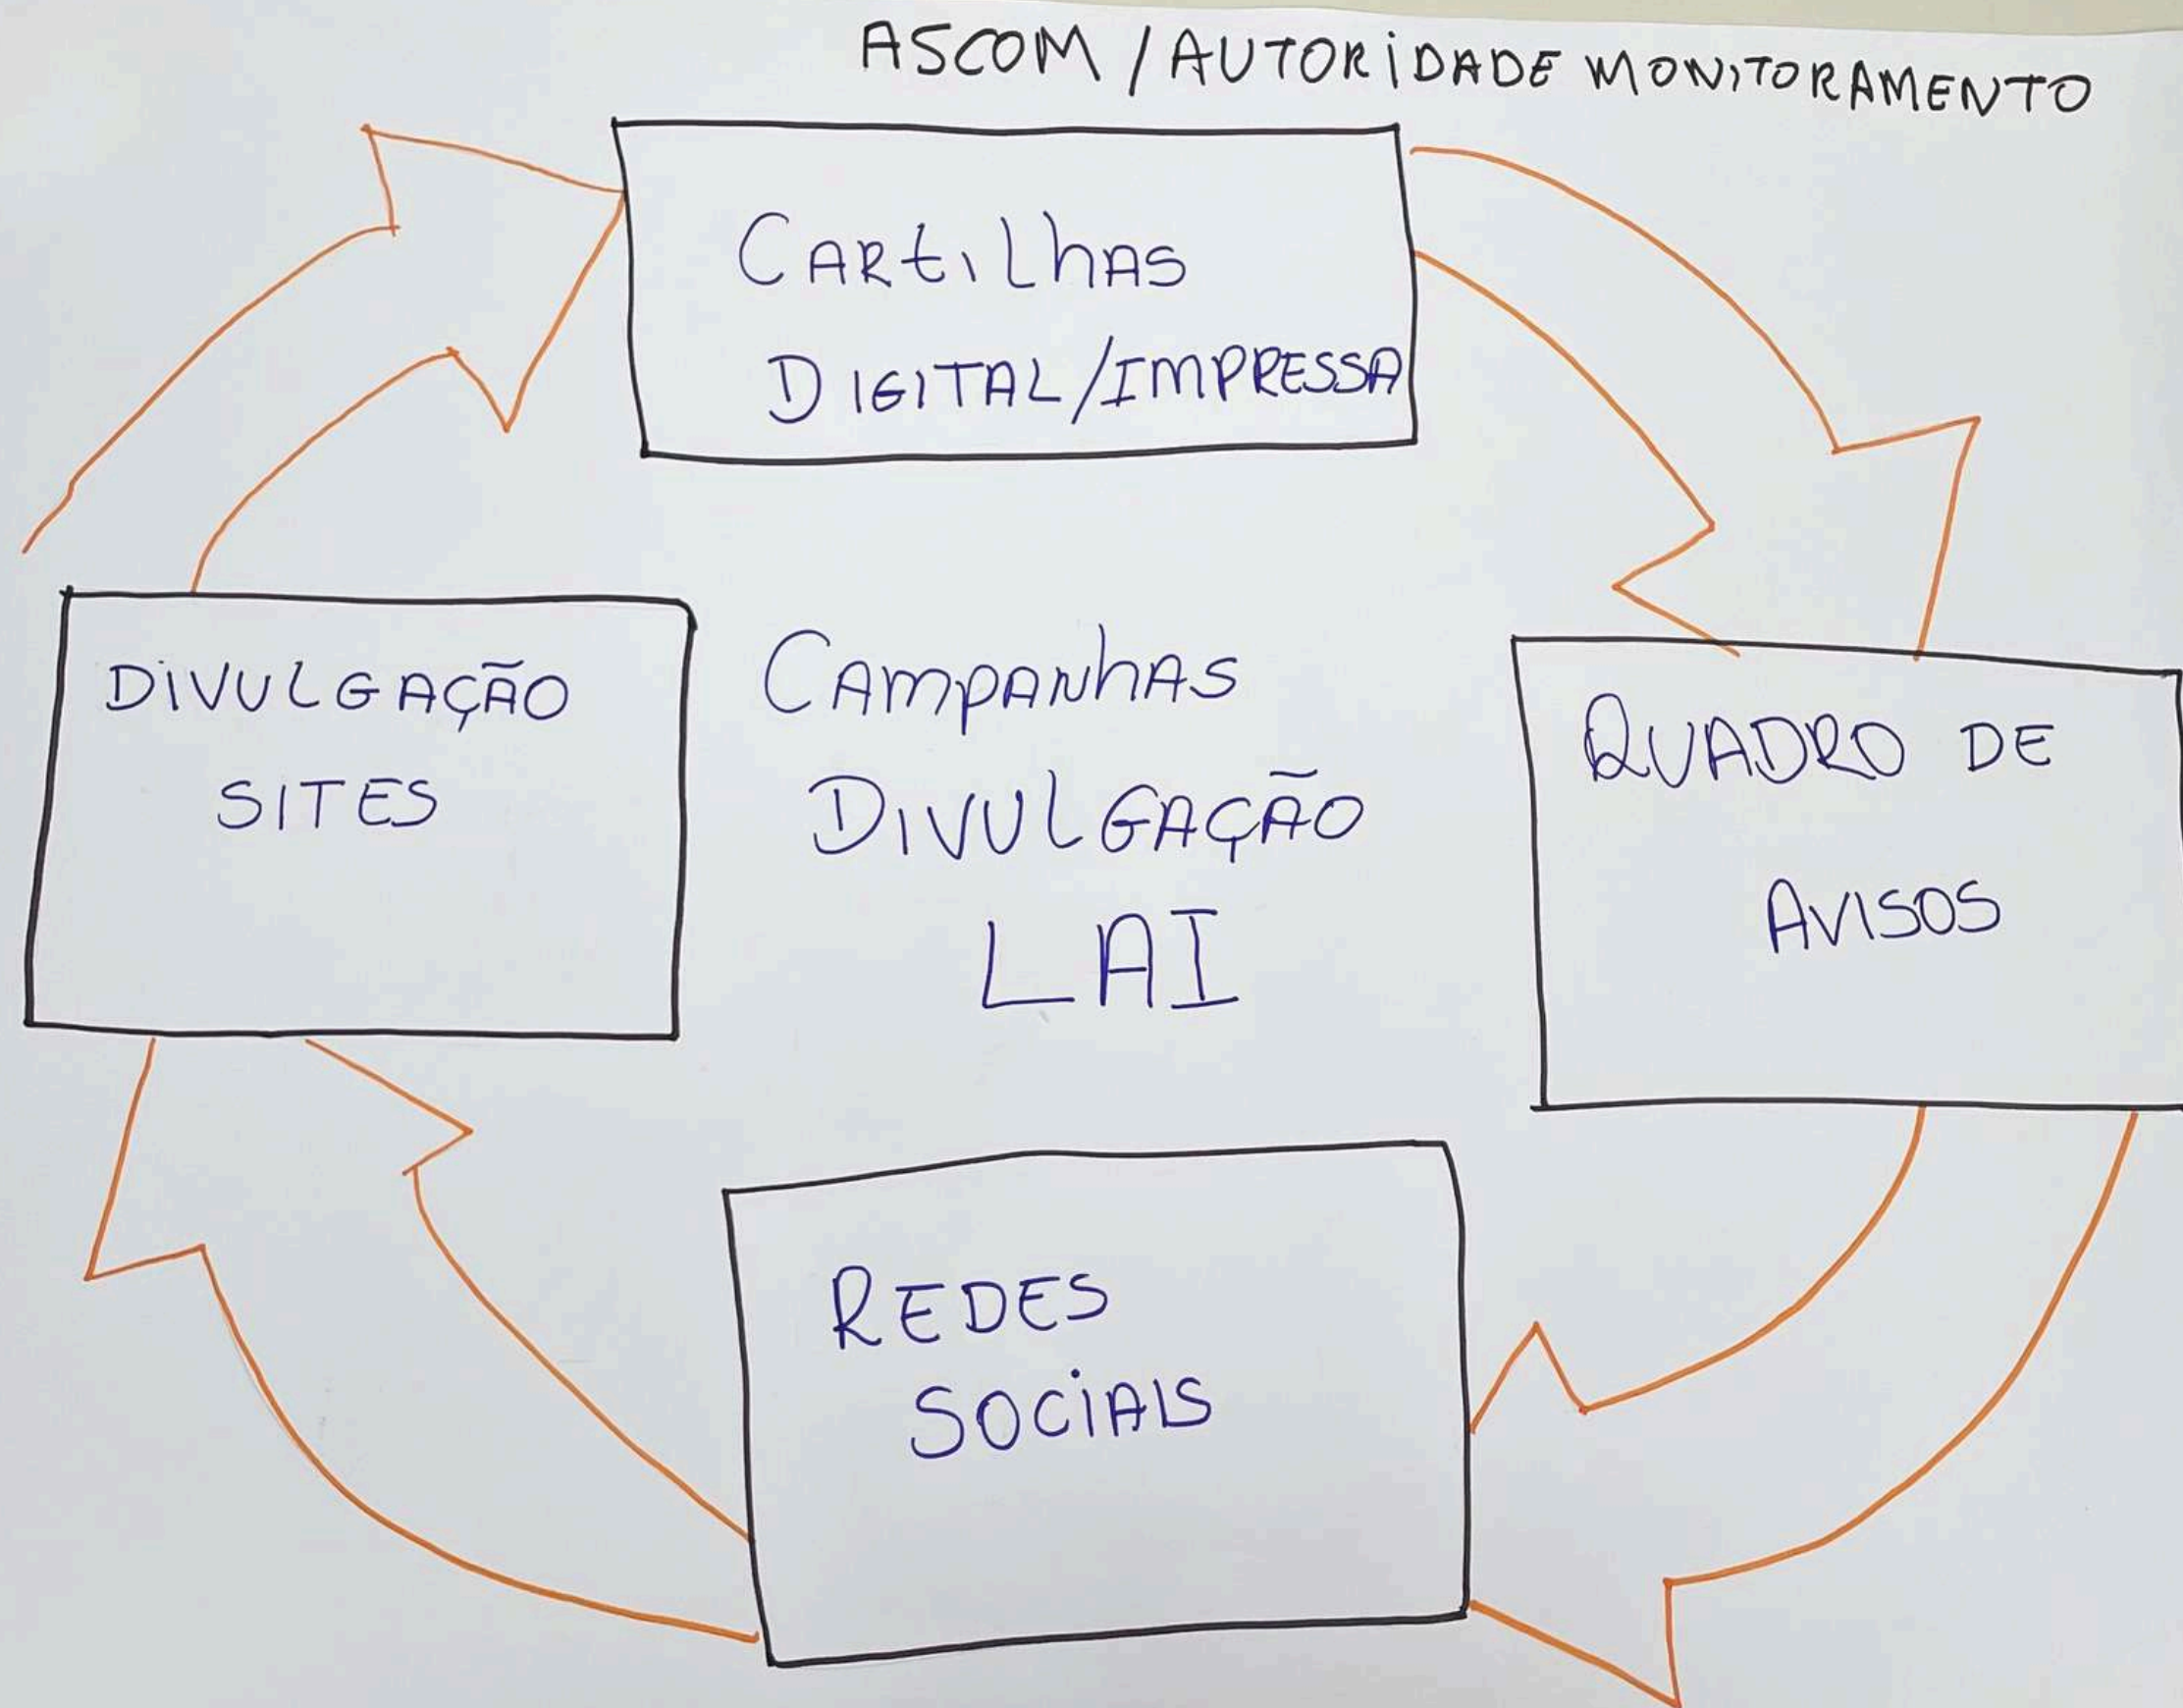 ASCOM / AUTORIDADE MONITORAMENTO
CARTILHAS
DIGITAL/IMPRESSA
DIVULGAÇÃO
SITES
CAMPANHAS
DIVULGAÇÃO
LAI
QUADRO DE
AVISOS
REDES
SOCIAIS